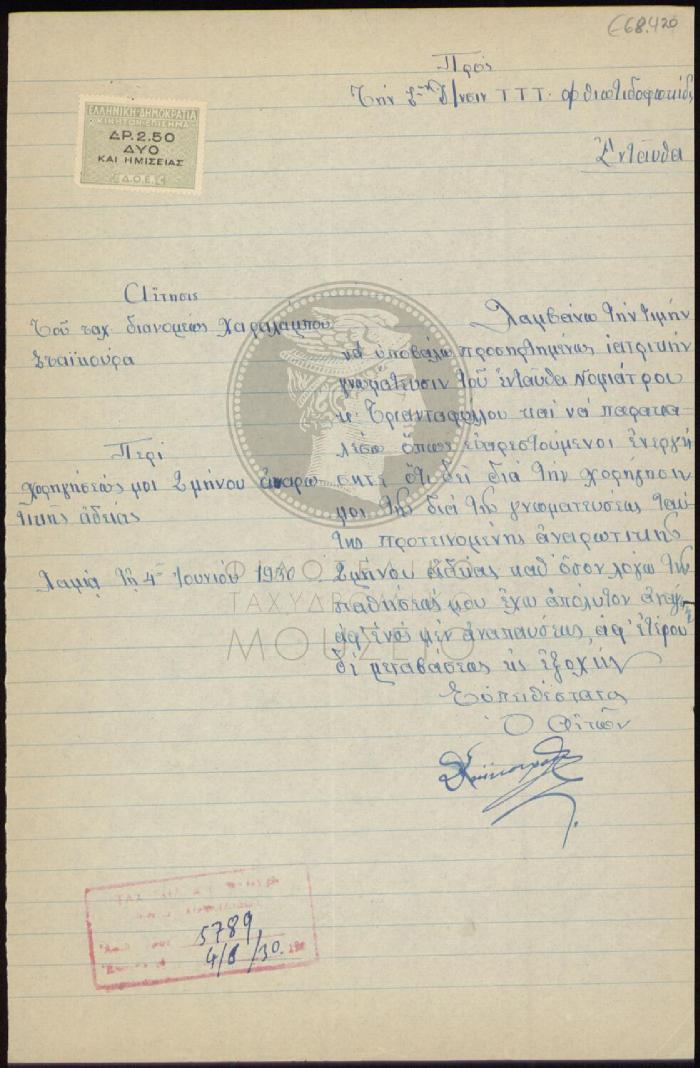 Ε68.420
Πρός
Τὴν Δ/νσιν Τ Τ Τ. Φθιωτιδοφωκίδος
Ἐνταῦθα
ΕΛΛΗΝΙΚΗ ΔΗΜΟΚΡΑΤΙΑ
ΚΙΝΗΤΟΝ ΕΠΙΣΗΜΑ
ΔΡ. 2.50
ΔΥΟ
ΚΑΙ ΗΜΙΣΕΙΑΣ
Δ.Ο.Ε.
Αἴτησις
Τοῦ ταχ. διανομέως Χαραλάμπου
Σταϊκούρα
Περὶ
χορηγήσεώς μοι 2μήνου ἀναρω
τικῆς ἀδείας
Λαμία τῇ 4ῃ Ἰουνίου 1930
Λαμβάνω τὴν τιμὴν
νὰ ὑποβάλω προσηρτημένως ἰατρικὴν
γνωμάτευσιν τοῦ ἐνταῦθα Νομιάτρου
κ. Τριανταφύλλου καὶ νὰ παρακα
λέσω ὅπως εὐαρεστούμενοι ἐνεργή
σητε ὅ,τι δεῖ διὰ τὴν χορήγησιν
μοι τῆς διὰ τῆς γνωματεύσεως ταύ
της προτεινομένης ἀναρωτικῆς
2μήνου ἀδείας καθ' ὅσον λόγω τῆς
παθήσεώς μου ἔχω ἀπόλυτον ἀνάγκ
ἀφ' ἑνὸς μὲν ἀναπαύσεως, ἀφ' ἑτέρου
δὲ μεταβάσεως εἰς ἐξοχήν
Εὐπειθέστατος
Ὁ Αἰτῶν
ΦΙΛΟΤΕΛΙΚΟ
ΤΑΧΥΔΡΟΜΙΚΟ
ΜΟΥΣΕΙΟ
5789
4/6/30.